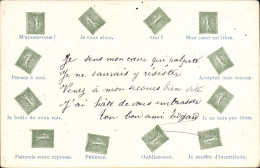 M'aimez-vous ? Je vous aime. Oui ! Mon cœur est libre.
Je sens mon cœur qui palpite
Pensez à moi. Je ne saurais y résister Acceptez mon amour.
Venez à mon secours bien vite
Je brûle de vous voir. J'ai hâte de vous embrasser Je ne suis pas libre.
ton bon ami
J'attends votre réponse. Patience. Oubliez-moi. Je souffre d'incertitude.